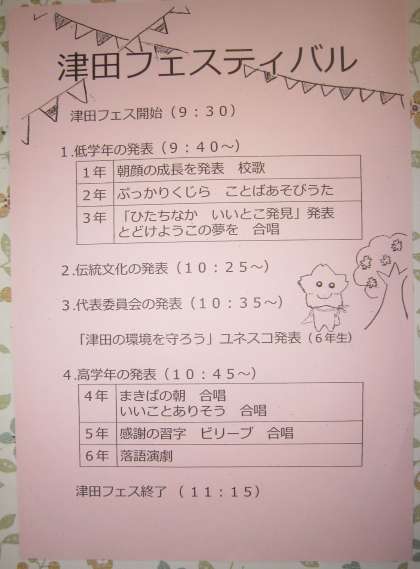 津田フェスティバル
津田フェス開始（９：３０）
１.低学年の発表（９：４０～）
１年 朝顔の成長を発表　校歌
２年 ぷっかりくじら　ことばあそびうた
３年 「ひたちなか　いいとこ発見」発表
とどけようこの夢を　合唱
２.伝統文化の発表（１０：２５～）
３.代表委員会の発表（１０：３５～）
「津田の環境を守ろう」ユネスコ発表（６年生）
４.高学年の発表（１０：４５～）
４年 まきばの朝　合唱
いいことありそう　合唱
５年 感謝の習字　ビリーブ　合唱
６年 落語演劇
津田フェス終了（１１：１５）